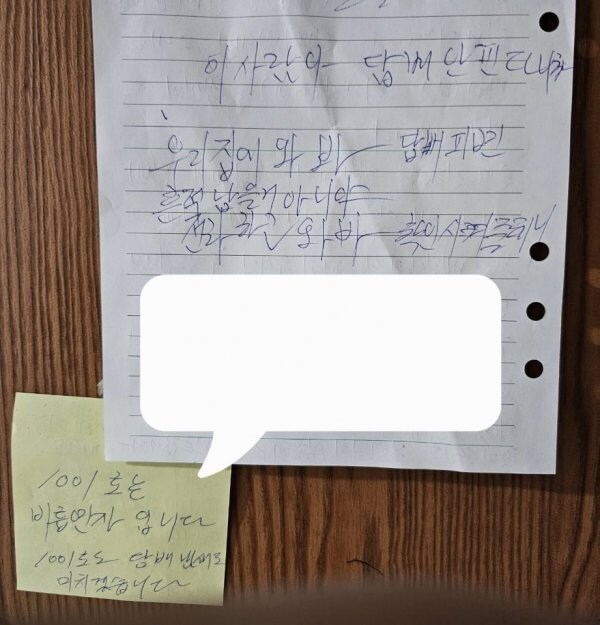 이 사람아 담배 안 핀다니까
우리집에 와 봐 담배 피면
흔적 남을거 아니야
전화 하고 와 봐 확인시켜줄테니
1001호는
비흡연자 입니다
1001호도 담배 냄새로
미치겠습니다